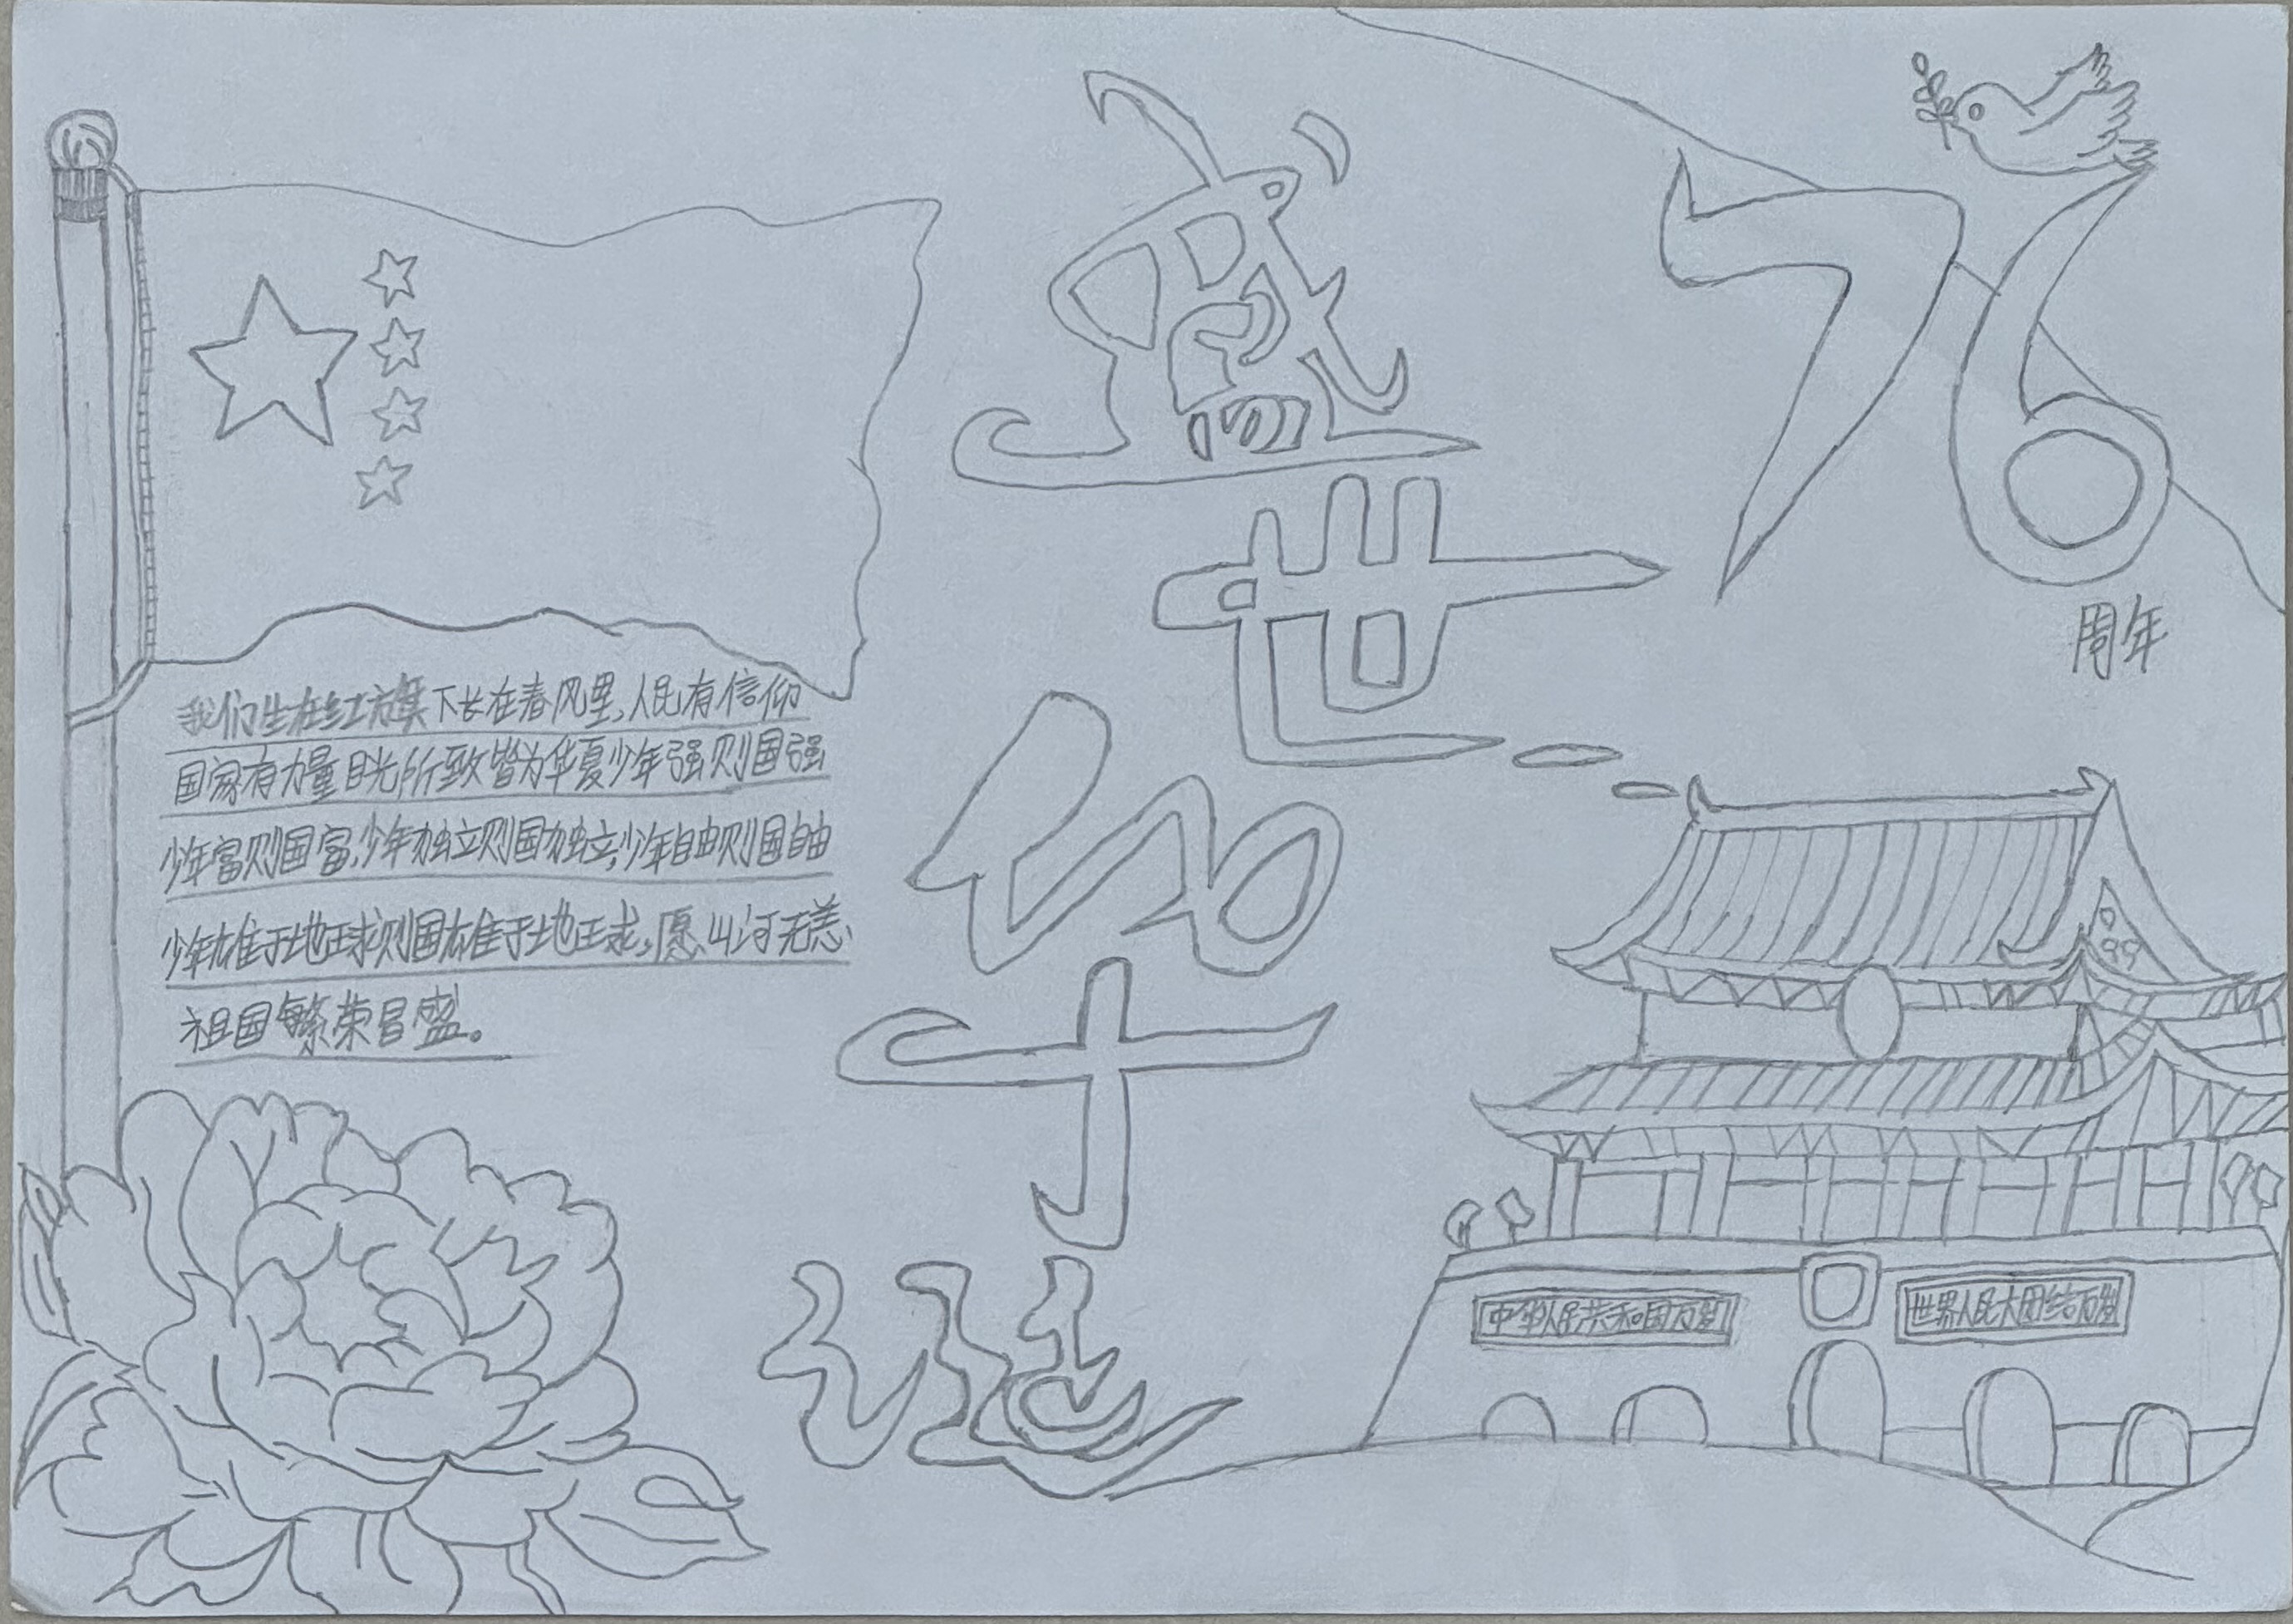 盛
世
华
诞
76
周年
我们生在红旗下长在春风里,人民有信仰
国家有力量目光所致皆为华夏少年强则国强
少年富则国富,少年独立则国独立,少年自由则国自由
少年雄于地球则国雄于地球,愿山河无恙、
祖国繁荣昌盛。
中华人民共和国万岁
世界人民大团结万岁